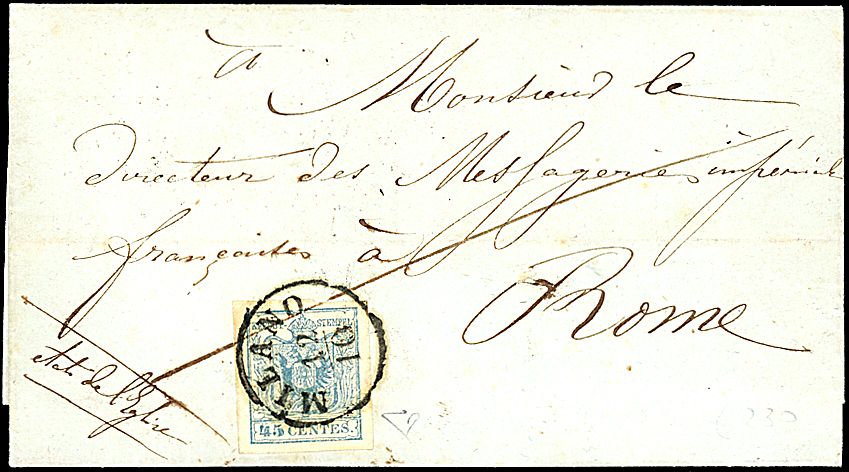 A
Monsieur le
directeur des Messageries impériales
françaises à
Rome
Etats de l'Eglise
MILANO
12
10
STEMPEL
45 CENTES.